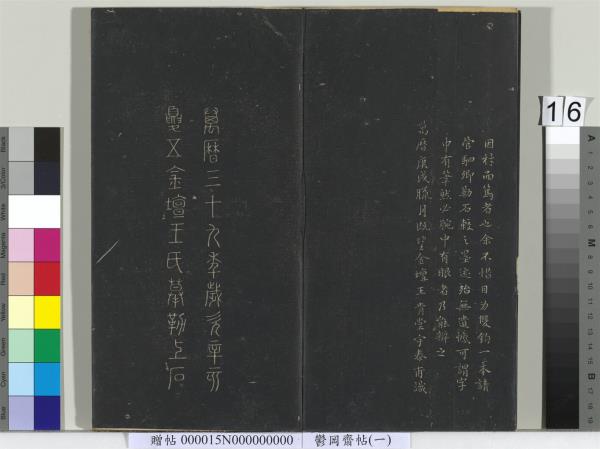 而篤者也余不惜目力雙鈎一本請
管駟卿勒石較之墨迹殆無遺憾可謂字
中有筆然必腕中有眼者乃能辨之
萬曆庚戌臘月既望金壇王肯堂宇泰甫識
萬曆三十九年歲次辛亥
夏五金壇王氏摹勒上石
16
Black
3/Color
White
Magenta
Red
Yellow
Green
Cyan
Blue
A
M
B
贈帖 000015N000000000 鬱岡齋帖(一)